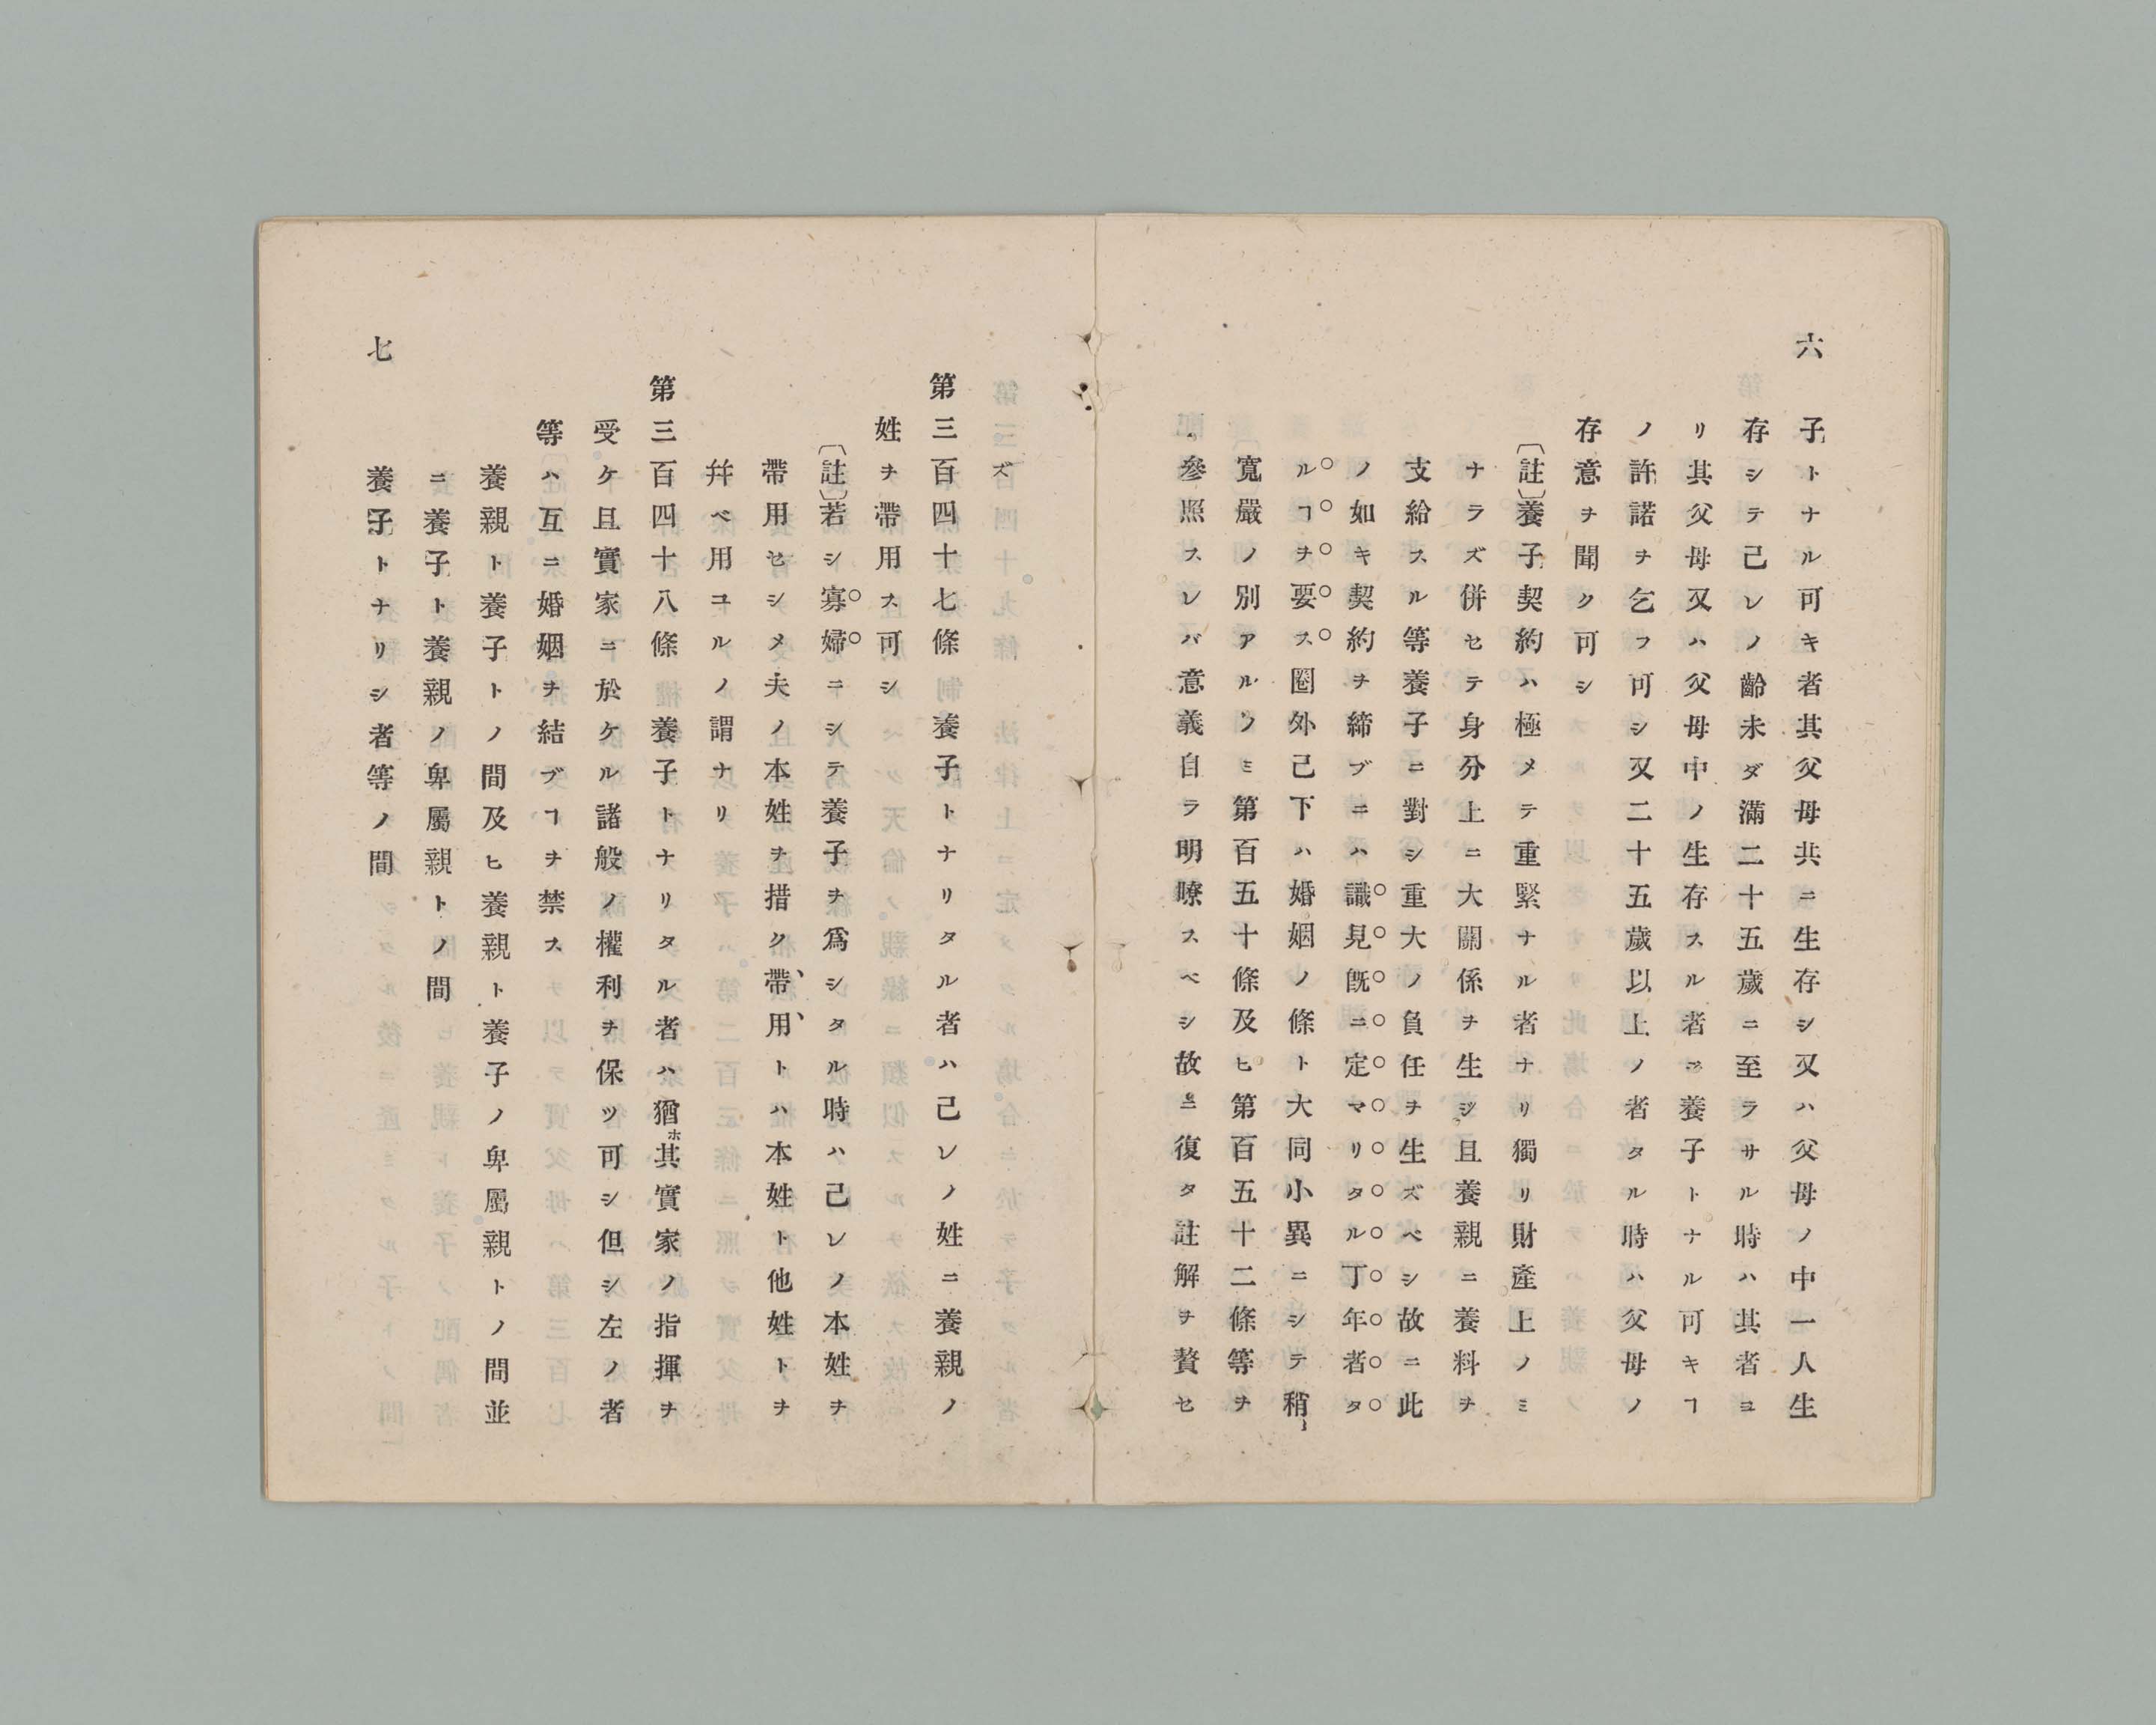 六
子トナル可キ者其父母共ニ生存シ又ハ父母ノ中一人生
存シテ己レノ齡未ダ滿二十五歲ニ至ラサル時ハ其者ヨ
リ其父母又ハ父母中ノ生存スル者ニ養子トナル可キヿ
ノ許諾ヲ乞フ可シ又二十五歲以上ノ者タル時ハ父母ノ
存意ヲ聞ク可シ
〔註〕養子契約ハ極メテ重緊ナル者ナリ獨リ財產上ノミ
ナラズ併セテ身分上ニ大關係ヲ生ジ且養親ニ養料ヲ
支給スル等養子ニ對シ重大ノ負任ヲ生ズベシ故ニ此
ノ如キ契約ヲ締ブニハ識見既ニ定マリタル丁年者タ
ルヿヲ要ス圈外己下ハ婚姻ノ條ト大同小異ニシテ稍〻
寬嚴ノ別アルノミ第百五十條及ヒ第百五十二條等ヲ
參照スレバ意義自ラ明瞭スベシ故ニ復タ註解ヲ贅セ
ズ
第三百四十七條 養子トナリタル者ハ己レノ姓ニ養親ノ
姓ヲ帶用ス可シ
〔註〕若シ寡婦ニシテ養子ヲ爲シタル時ハ己レノ本姓ヲ
帶用セシメ夫ノ本姓ヲ措ク帶用トハ本姓ト他姓トヲ
幷ベ用ユルノ謂ナリ
第三百四十八條 養子トナリタル者ハ猶ホ其實家ノ指揮ヲ
受ケ且實家ニ於ケル諸般ノ權利ヲ保ツ可シ但シ左ノ者
等ハ互ニ婚姻ヲ結ブヿヲ禁ス
養親ト養子トノ間及ヒ養親ト養子ノ卑屬親トノ間並
ニ養子ト養親ノ卑屬親トノ間
養子トナリシ者等ノ間
七